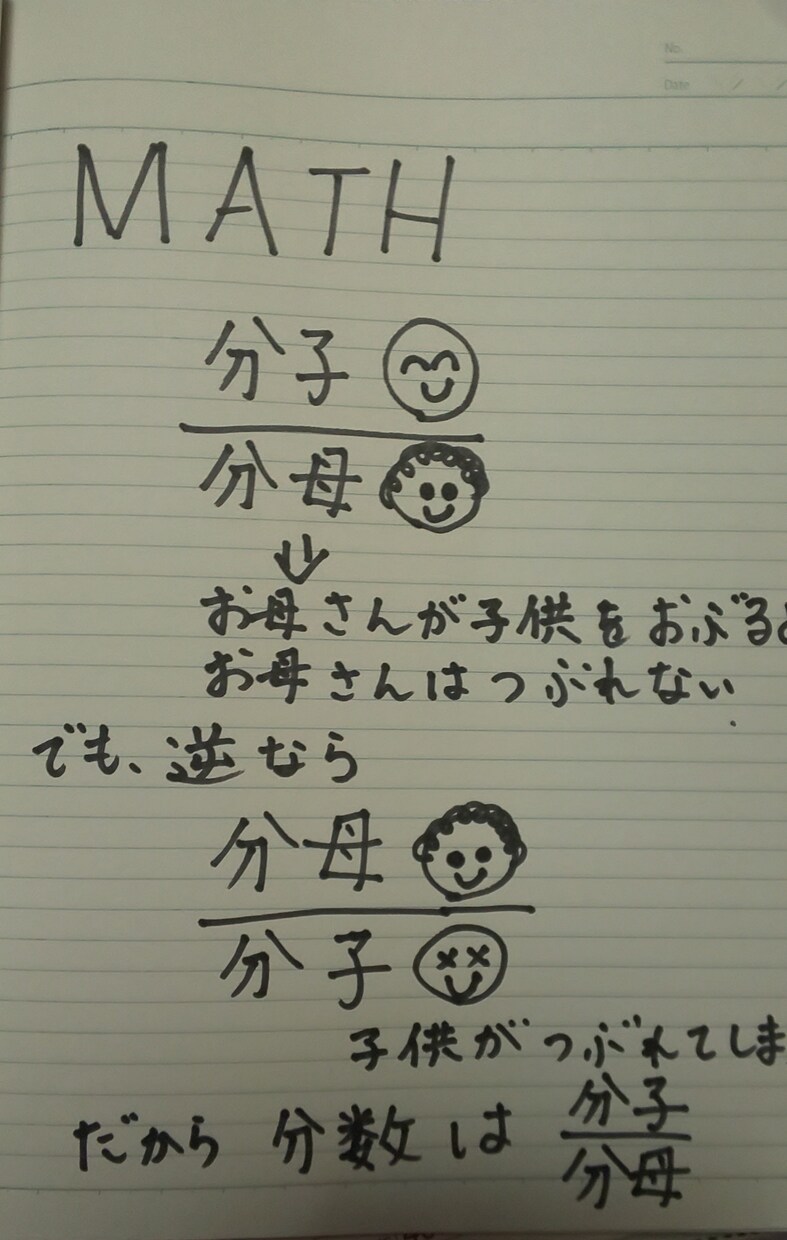 No.
Date / /
MATH
分子
分母
⇓
お母さんが子供をおぶると
お母さんはつぶれない
でも、逆なら
分母
分子
子供がつぶれてしま
だから 分数は 分子
分母